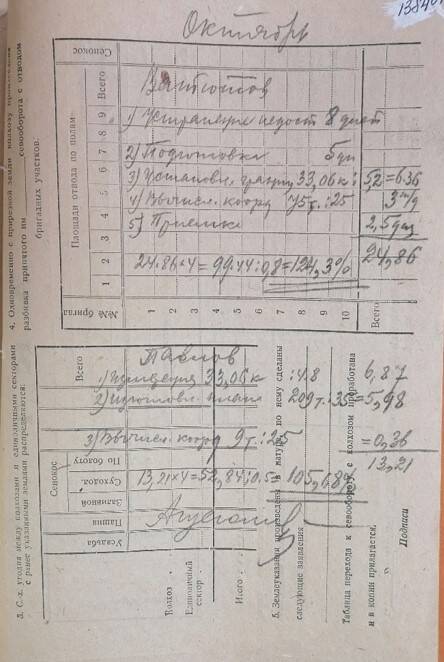 13840
Октябрь
Вайтютов
1) Устранение недост 8 дней
2) Подготовка 5 дн
3) Установл. границ 33,06 к : 5,2 = 6.36
4) Вычисл. коорд 75 т. : 25 3 ч/д
5) Приемка 2,5 дня
24,86
24.86 × 4 = 99.44 : 0,8 = 124,3%
Павлов
1) Проведения 33,06 к : 4.8 6,87
2) изготовл. плана 209 т. : 35 = 5,98
3) Вычисл. коорд 9 т. : 25 = 0,36
13,21
13,21 × 4 = 52,84 : 0.5 = 105,68%
3. С.-х. угодия между колхозами и единоличными секторами
с ранее указанными землями распределяются:
Усадьба
Пашня
Сенокос
Заливной
Суходол.
По болоту
Всего
Колхоз
Единоличный
сектор
Итого
4. Одновременно с прирезкой земли колхозу произведена
разбивка принятого им севооборота с отводом
бригадных участков:
№№ бригад
Площади отвода по полям
1 2 3 4 5 6 7 8 9 Всего
Сенокос
1
2
3
4
5
6
7
8
9
10
Всего
5. Землеуказания произведены в натуре, по нему сделаны
следующие заявления
Таблица перехода к севообороту с колхозом проработана
и в копии прилагается.
Подписи